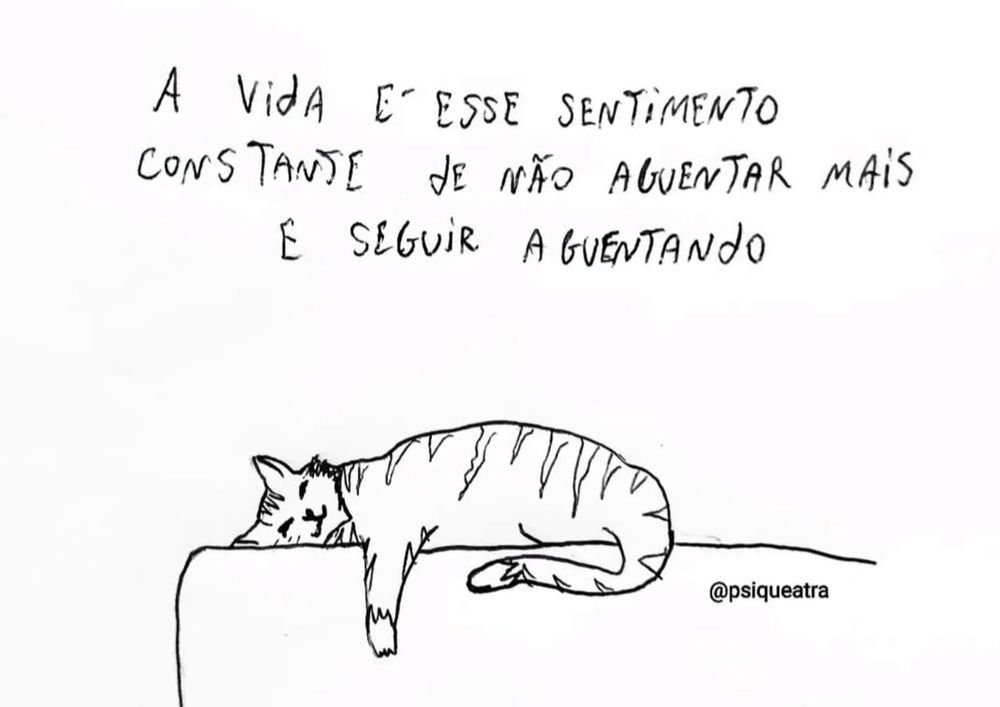 A VIDA É ESSE SENTIMENTO
CONSTANTE DE NÃO AGUENTAR MAIS
E SEGUIR AGUENTANDO
@psiqueatra